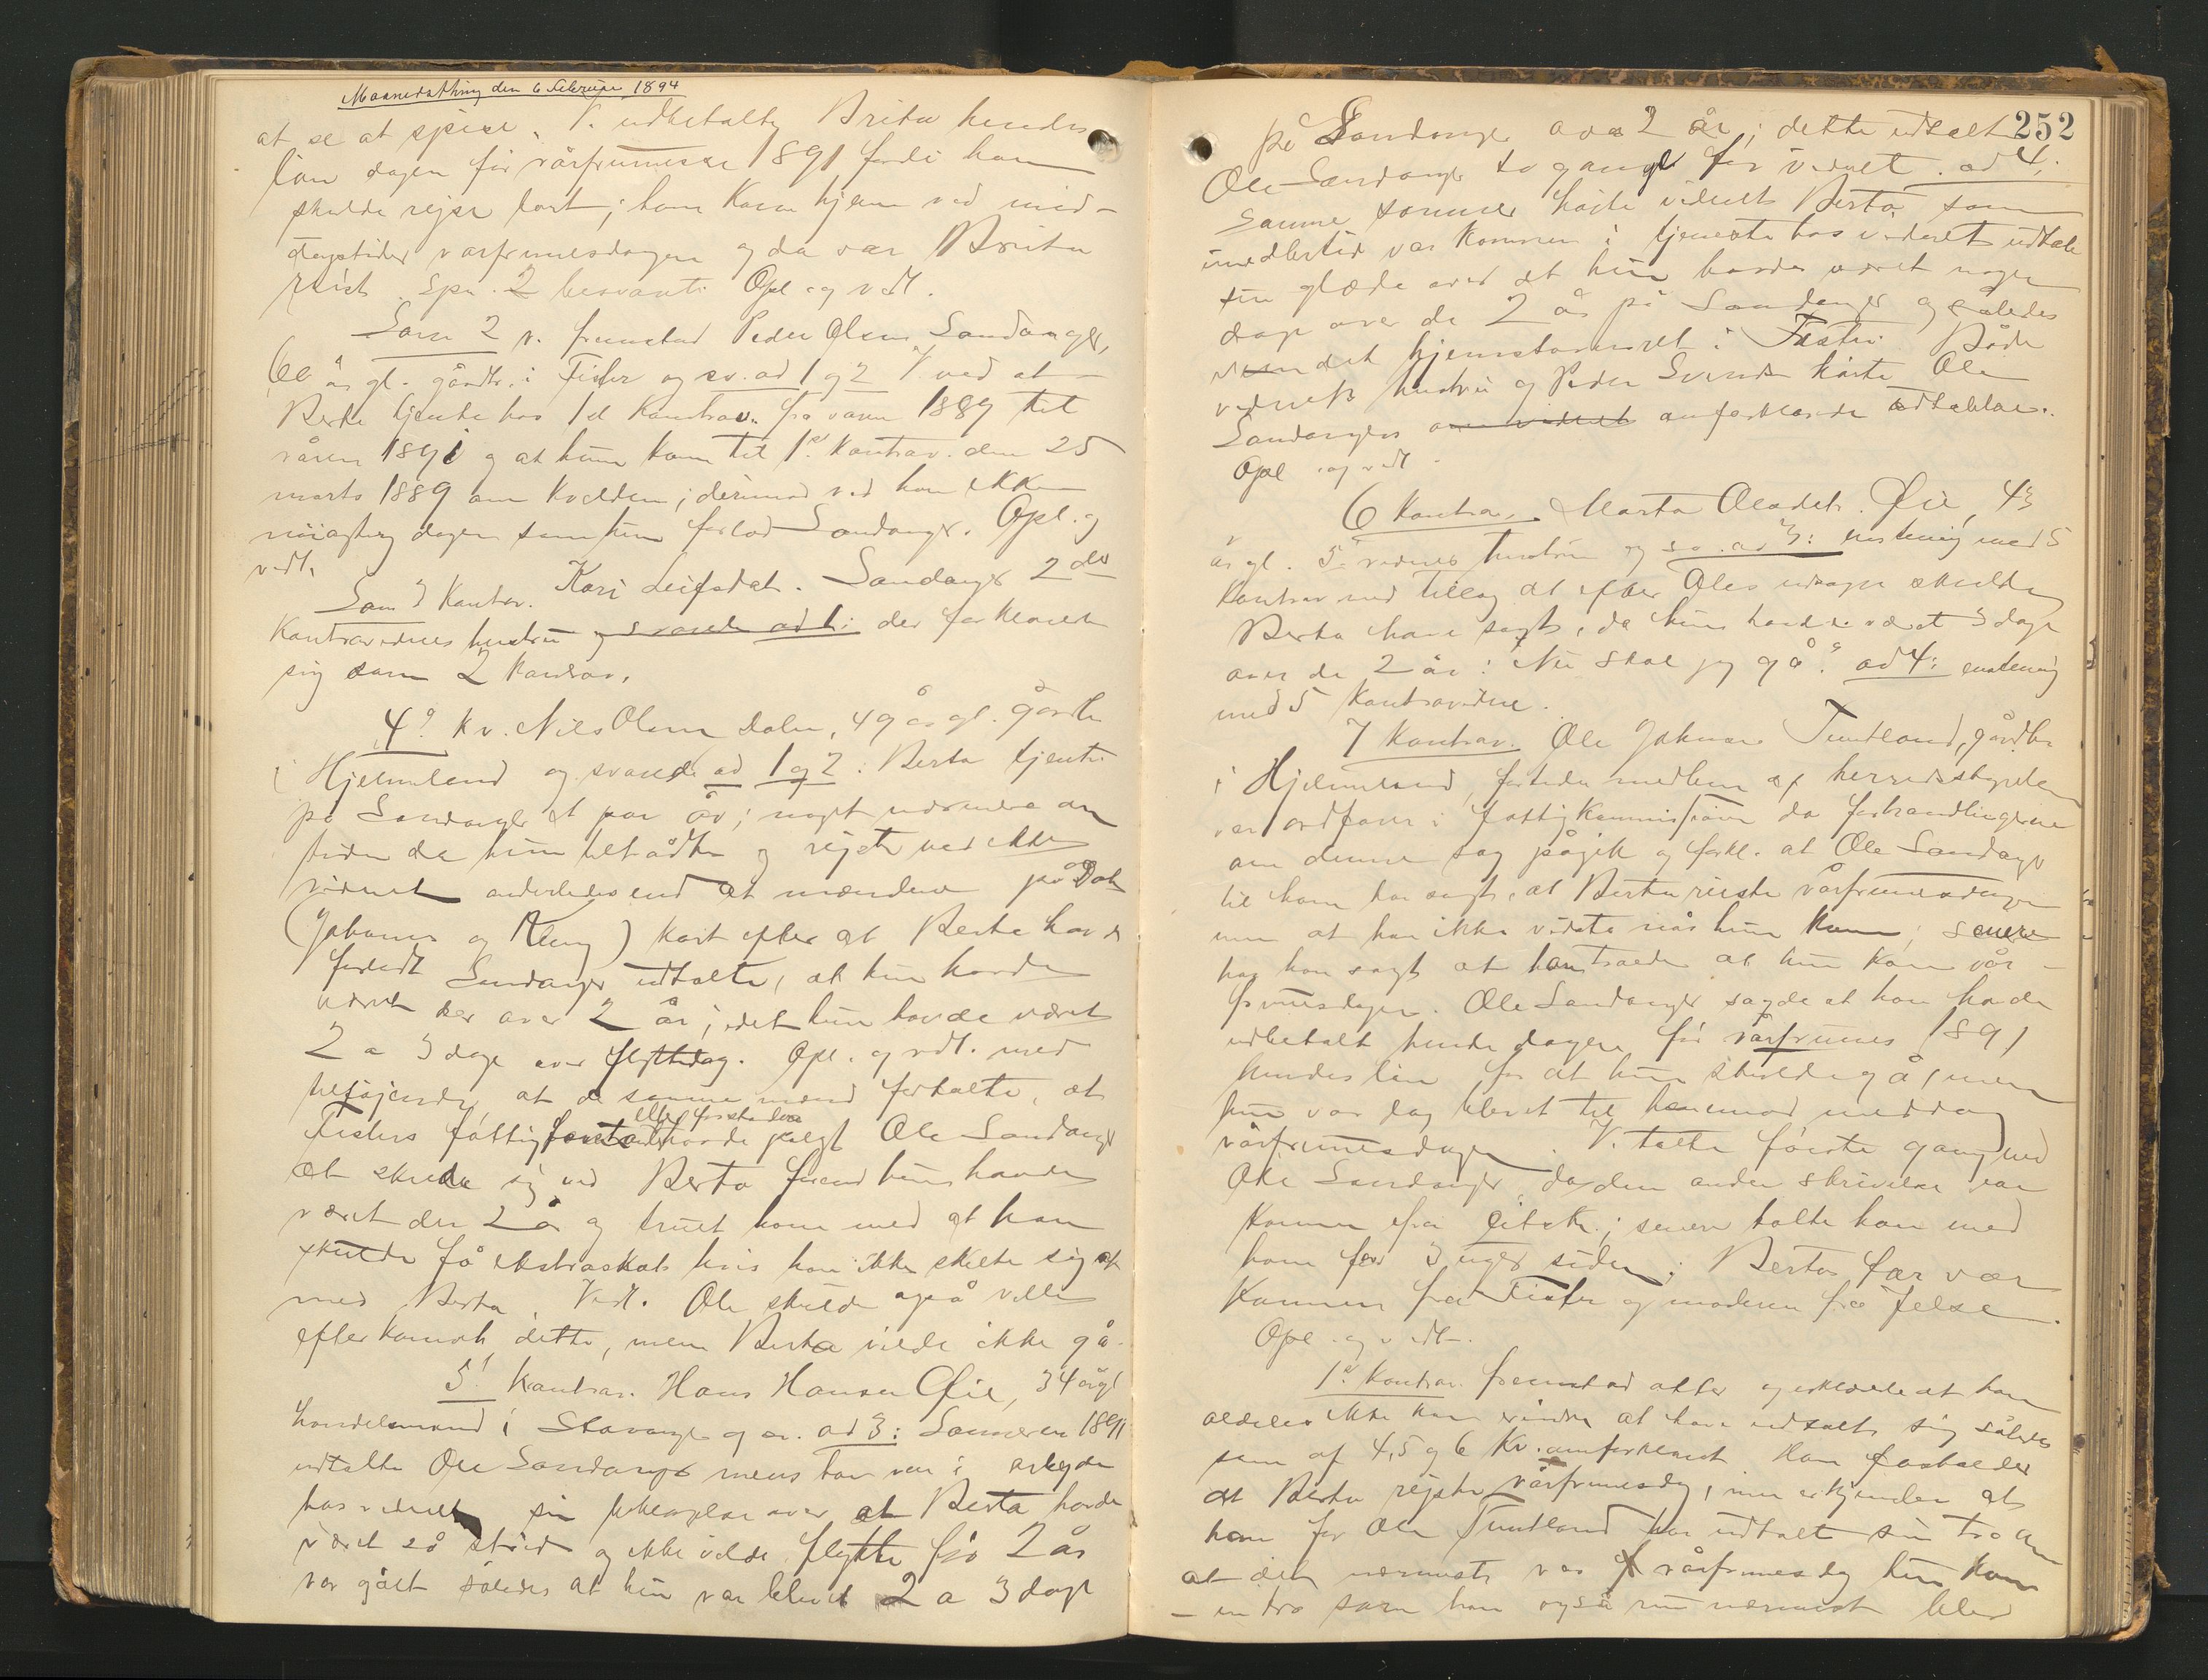 Maanedsthing den 6 februar 1894
at se at spise. V. udbetalte Brita hendes
løn dagen før vårfrumesse 1891 fordi han
skulde rejse bort; han kom hjem ved mid-
dagstider vårfrumesdagen og da var Brita
reist. Spm. 2 besvart: Opl og vedt.
Som 2 v. fremstod Peder Olsen Sandanger,
60 år gl. gårdbr. i Fister og sv. ad 1 og 2 V. ved at
Berta tjente hos 1st kontrav. fra våren 1889 til
våren 1891 og at hun kom til 1st kontrav. den 25
marts 1889 om kvelden; derimod ved han ikke
nöiagtig dagen som hun forlod Sandanger. Opl. og
vedt.
Som 3 kontrav. Kari Leifsdat. Sandanger 2det
kontravidnes hustru og svarede ad 1: der forklarede
sig som 2 kontrav.
4° Kv. Nils Olsen Dalen, 49 år gl. gårdbr
i Hjelmeland og svarede ad 1 og 2: Berta tjente
på Sandanger et par år; noget nærmere om
tiden da hun tiltrådte og rejste ved ikke
vidnet anderledes end at mændene på Dale
(Johannes og ) kort efter at Berta havde
forladt Sandanger udtalte, at hun havde
været der over 2 år; idet hun havde været
2 a 3 dage over flyttedag. Opl. og vdt. med
tilföjende, at de samme mænd fortalte, at
eller forstander
Fisters fattigforstander havde pålagt Ole Sandanger
at skille sig ved Berta forend hun havde
været der 2 år og truet ham med at han
skulde få ekstraskat hvis han ikke skilte sig af
med Berta. Vedt. Ole skulde også ville
efterkommet dette, men Berta vilde ikke gå.
5' kontrav. Hans Hansen Øie, 34 år gl
handelsmand i Stavanger og sv. ad 3: Sommeren 1891
udtalte Ole Sandanger mens han var i arbejde
hos vidnet sin beklagelse over at Berta havde
været så strid og ikke vilde flytte før 2 år
var gået således at hun var blevet 2 a 3 dage
252
på Sandanger over 2 år; dette udtalte
Ole Sandanger to gange for vidnet. ad 4;
Samme sommer hörte vidnet Berta som
imidlertid var kommen i tjeneste hos vidnet udtale
sin glæde over at hun havde været nogen
dage over de 2 år på Sandanger og således
vundet hjemstavnsret i Fister. Både
vidnets hustru og Peder Svendsen hörte Ole
Sandangers om vidnet omforklarede udtalelser.
Opl og vedt.
6 kontrav. Marta Olesdat. Øie, 43
år gl. 5' vidnes hustru og sv. ad 3: enstemig med 5
kontrav med tillæg at efter Oles udsagn skulde
Berta have sagt, da hun havde været 3 dage
over de 2 år: "Nu skal jeg gå". ad 4: enstemig
med 5 kontravidne.
7 kontrav. Ole Johnsen Tuntland, gårdbr
i Hjelmeland, fortiden medlem af herredsstyrelsen
var ordfører i fattigkommissionen da forhandlingerne
om denne sag pågik og forkl. at Ole Sandanger
til ham har sagt, at Berta reiste vårfrumesdagen
men at han ikke vidste når hun kom; senere
har han sagt at han troede at hun kom vår-
frumesdagen. Ole Sandanger sagde at han havde
udbetalt hende dagen för vårfrumes 1891
hendes lön for at hun skulde gå, men
hun var dog blevet til henimod middag
vårfrumesdagen. V. talte förste gang med
Ole Sandanger da den anden skrivelse var
kommen fra ; senere talte han med
ham for 3 uger siden; Bertas far var
kommen fra Fister og moderen fra Jelse.
Opl. og vedt.
1st kontrav. fremstod atter og erklærede at han
aldeles ikke kan erindre at have udtalt sig således
som af 4, 5 og 6 Kv. omforklaret. Han fastholder
at Berta rejste vårfrumesdag, men erkjender at
han for Ole Tuntland har udtalt sin tro om
at det nærmest var vårfrumesdag hun kom
- en tro som han også nu nærmest blev